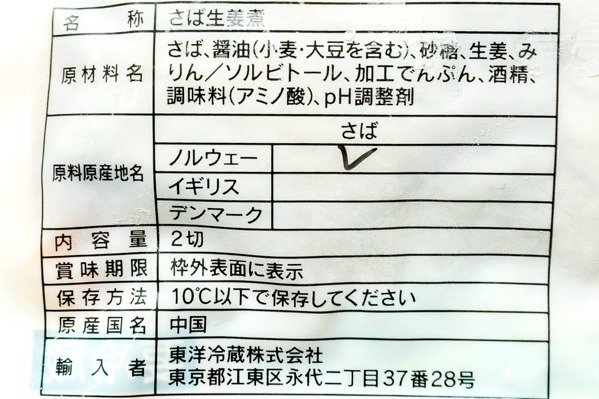 名称 さば生姜煮
原材料名 さば、醤油(小麦・大豆を含む)、砂糖、生姜、み
りん／ソルビトール、加工でんぷん、酒精、
調味料(アミノ酸)、pH調整剤
原料原産地名 さば
ノルウェー ✓
イギリス
デンマーク
内容量 2切
賞味期限 枠外表面に表示
保存方法 10℃以下で保存してください
原産国名 中国
輸入者 東洋冷蔵株式会社
東京都江東区永代二丁目37番28号